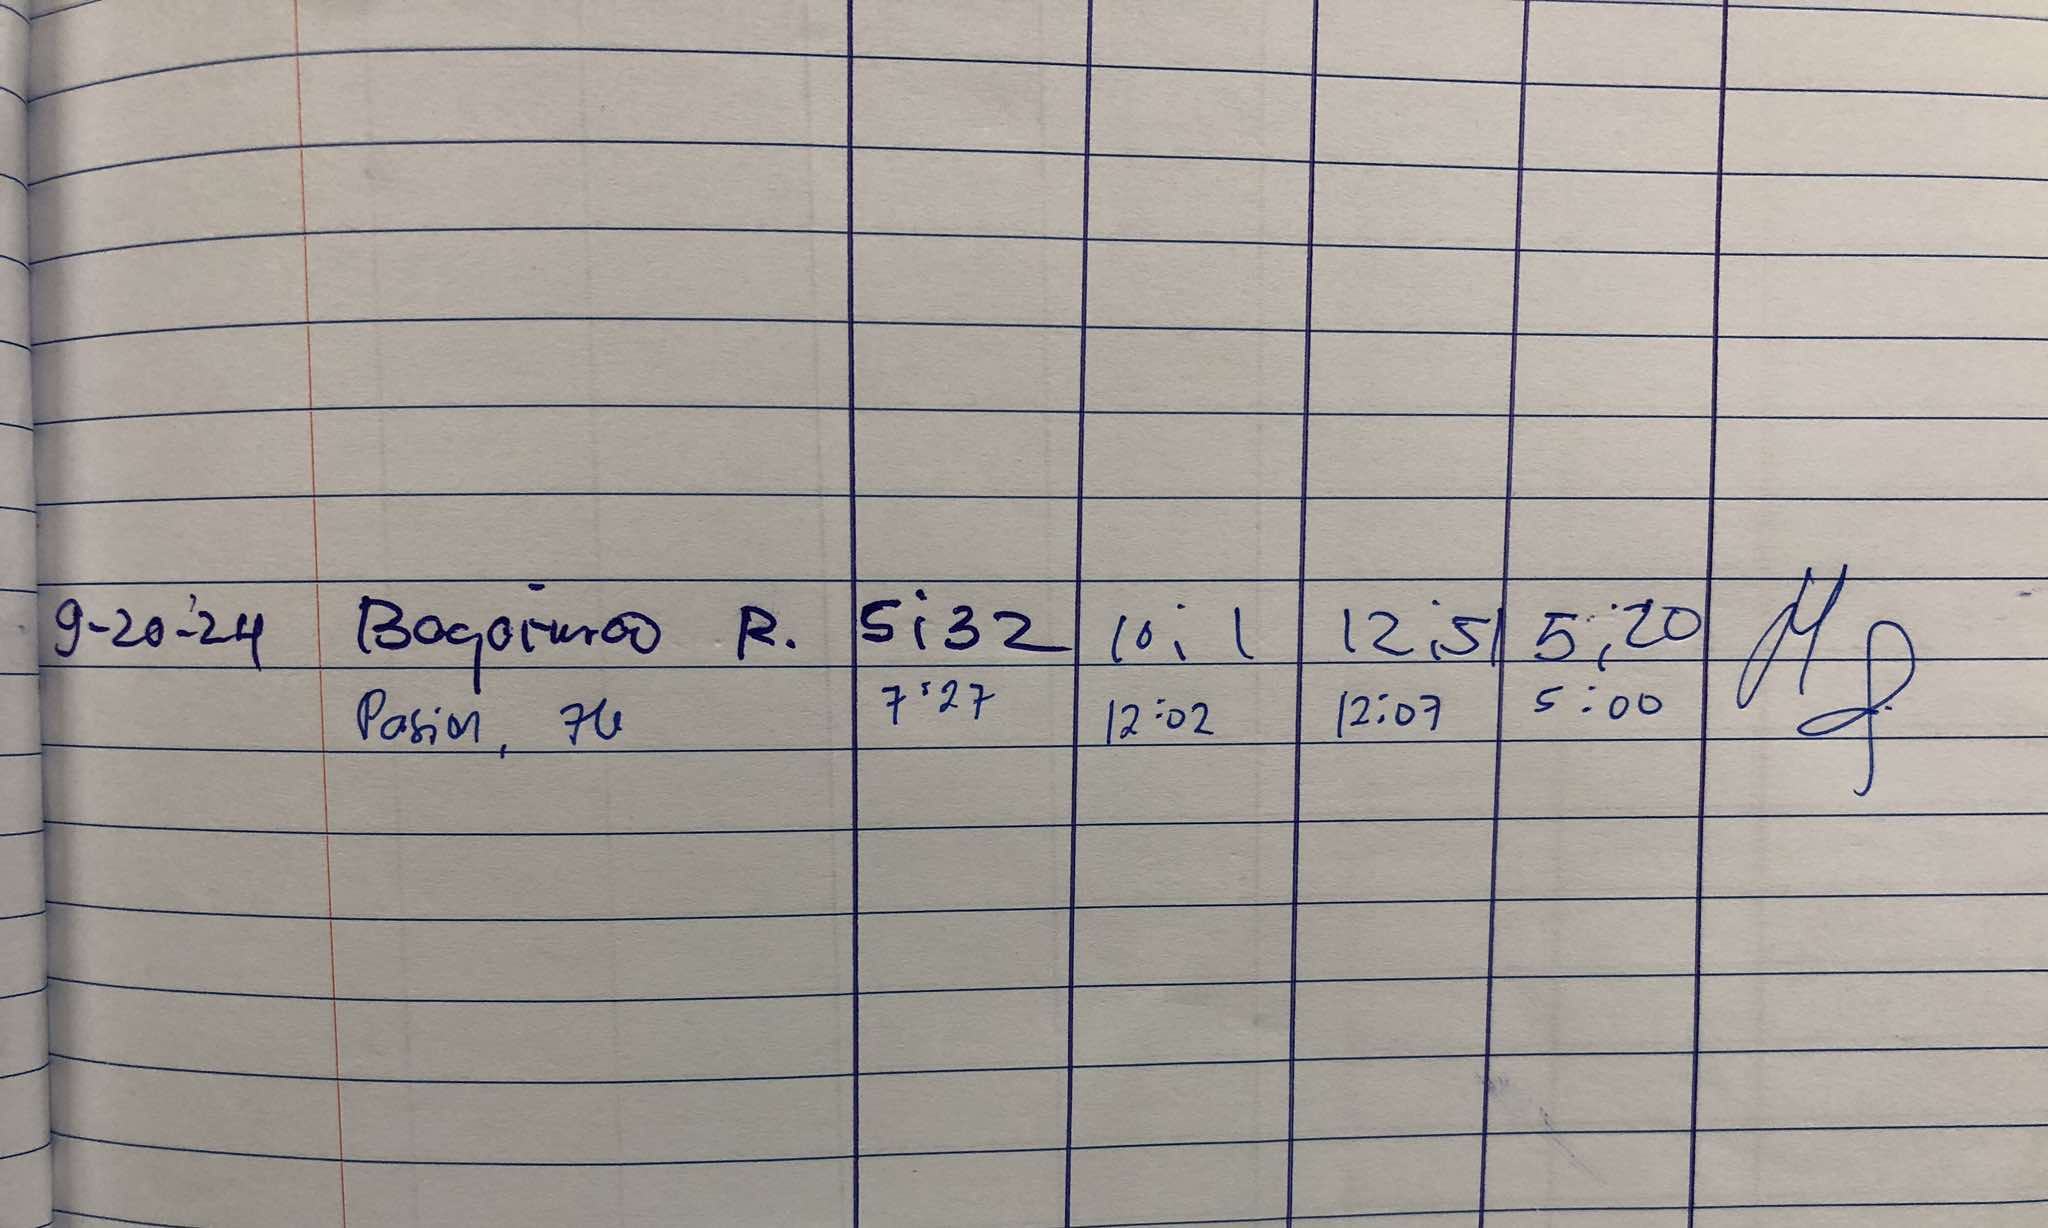 9-20-'24 Bagoinroo R. 5:32 10:1 12:51 5:20
Pasion, 7:27 12:02 12:07 5:00